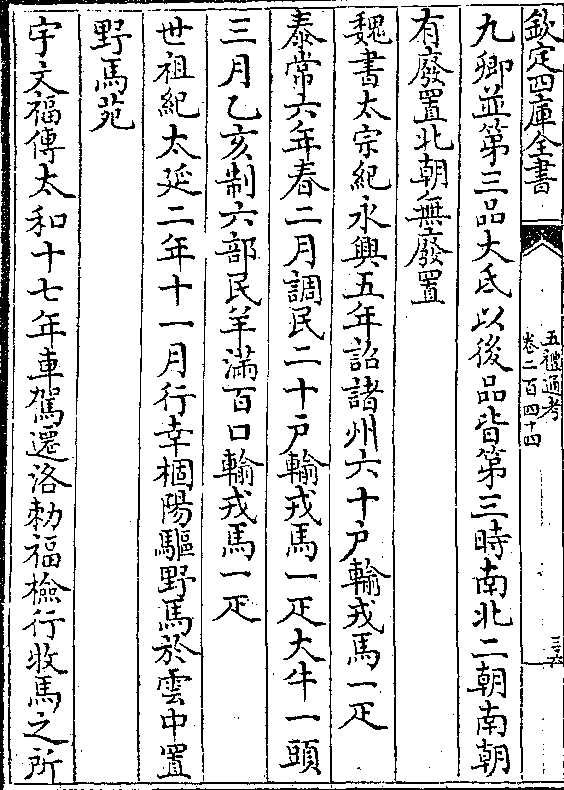 欽定四庫全書
五禮通考
卷二百四十四
三六
九卿並第三品大氐以後品皆第三時南北二朝南朝
有廢置北朝無廢置
魏書太宗紀永興五年詔諸州六十户輸戎馬一疋
泰常六年春二月調民二十户輸戎馬一疋大牛一頭
三月乙亥制六部民羊滿百口輸戎馬一疋
世祖紀太延二年十一月行幸棝陽驅野馬於雲中置
野馬苑
宇文福傳太和十七年車駕還洛勅福檢行牧馬之所